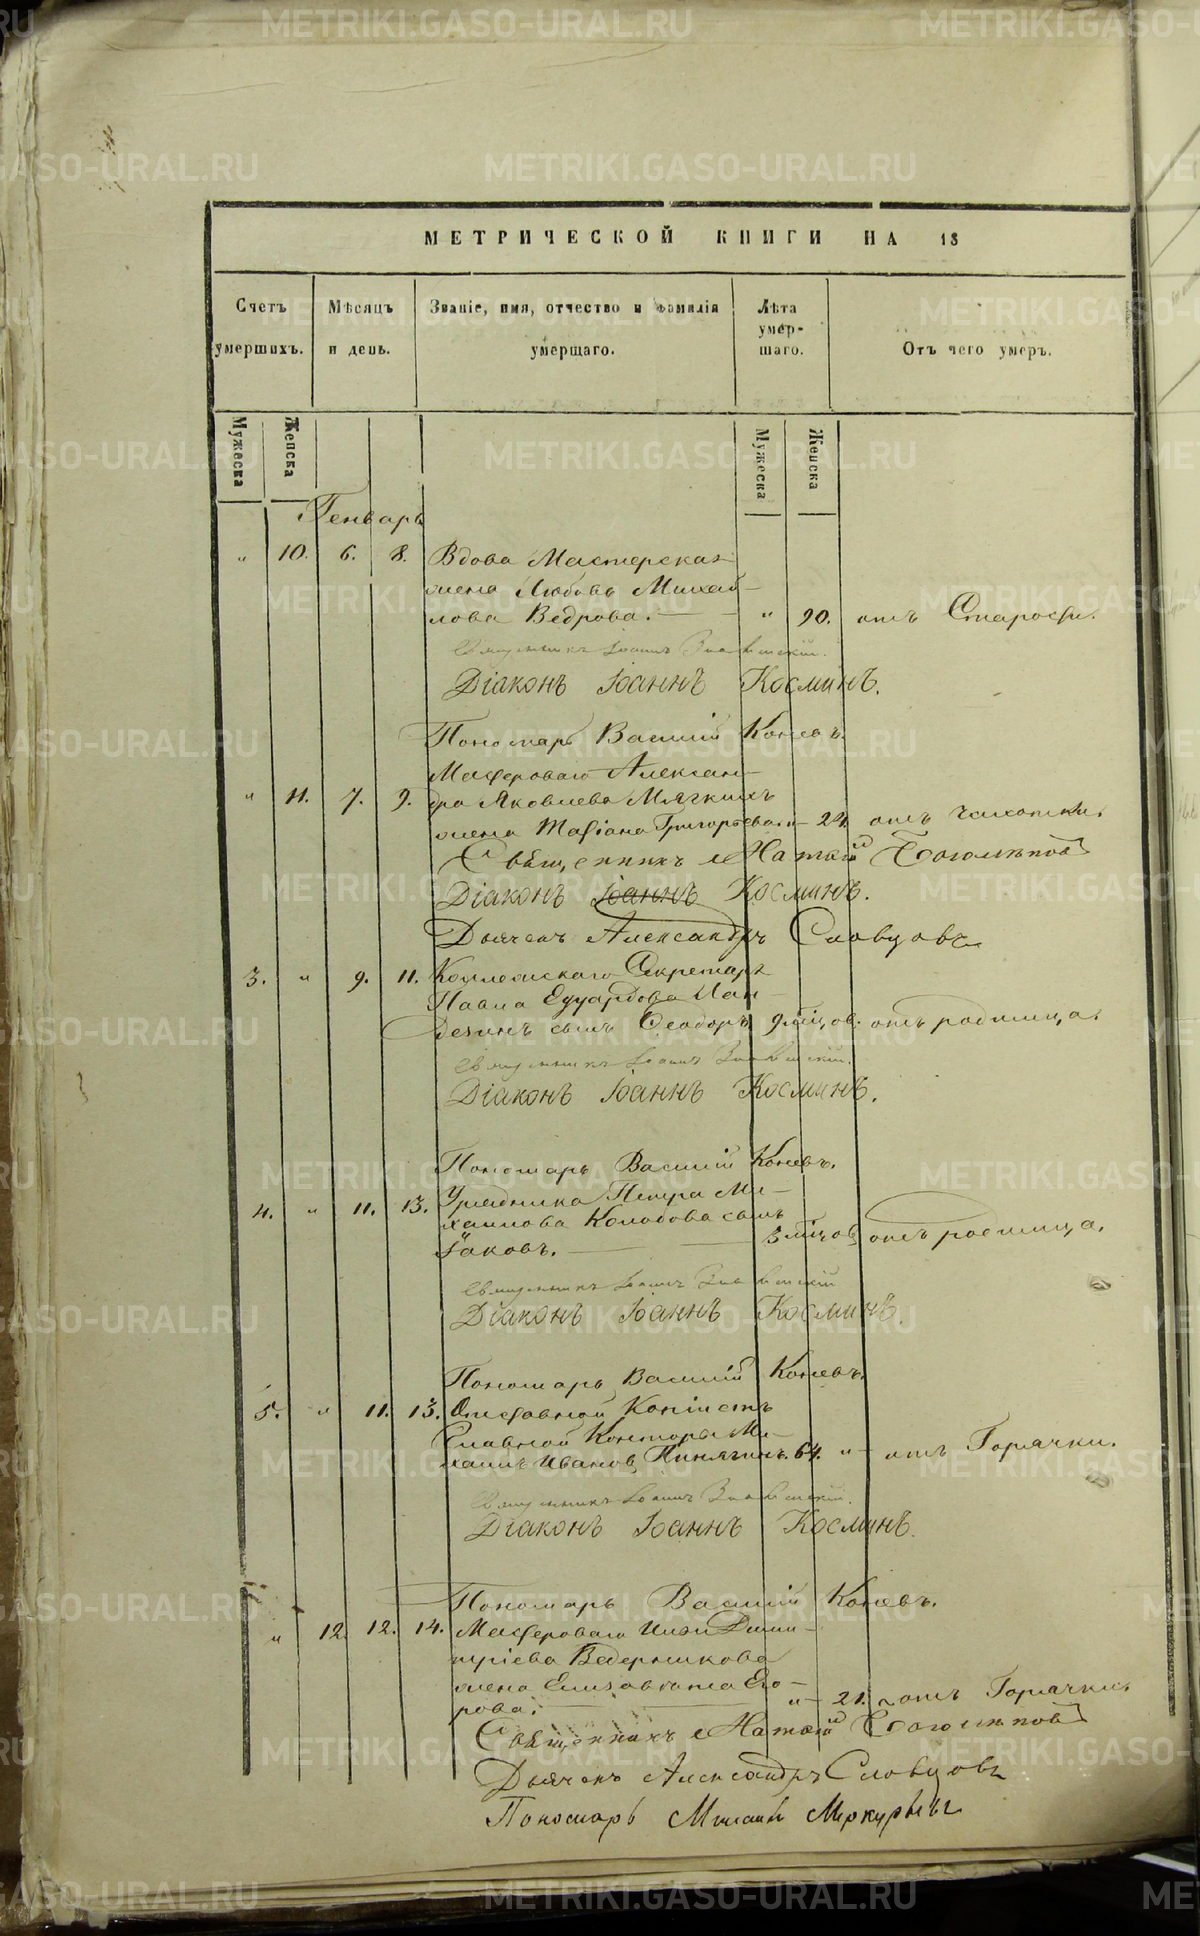 МЕТРИЧЕСКОЙ КНИГИ НА 18
Счетъ умершихъ.
Мѣсяцъ и день.
Званіе, имя, отчество и фамилія умершаго.
Лѣта умер-
шаго.
Отъ чего умеръ.
Мужеска
Женска
Мужеска
Женска
Генварь
" 10. 6. 8. Вдова Мастерская
жена Любовь Михай-
лова Ведрова. " 90. отъ Старости.
Священникъ Іоаннъ
Діаконъ Іоаннъ Косминъ.
Пономарь Василій Коневъ.
Мастероваго Алексан-
" 11. 7. 9. дра Яковлева Мягкихъ
жена Татіана Григорьева. " 24. отъ чахотки.
Священникъ Матѳій Боголѣповъ
Діаконъ Іоаннъ Косминъ.
Дьячекъ Александръ Словцовъ
3. " 9. 11. Коллежскаго Секретаря
Павла Едуардова
сынъ Ѳеодоръ 9 мѣцов. отъ родимца.
Священникъ Іоаннъ
Діаконъ Іоаннъ Косминъ.
Пономарь Василій Коневъ.
4. " 11. 13. Урядника Петра Ми-
хаилова Колобова сынъ
Іаковъ. 3 мѣцов отъ родимца.
Священникъ Іоаннъ
Діаконъ Іоаннъ Косминъ.
Пономарь Василій Коневъ.
5. " 11. 13. Отставной Копіистъ
Главной Конторы Ми-
хаилъ Ивановъ Пинягинъ. 64. " отъ Горячки.
Священникъ Іоаннъ
Діаконъ Іоаннъ Косминъ.
Пономарь Василій Коневъ.
" 12. 12. 14. Мастероваго Ильи Дими-
тріева Ведерникова
жена Елизавета Его-
рова. " 21. отъ Горячки.
Священникъ Матѳій Боголѣповъ
Дьячекъ Александръ Словцовъ
Пономарь Михаилъ Меркурьевъ
METRIKI.GASO-URAL.RU